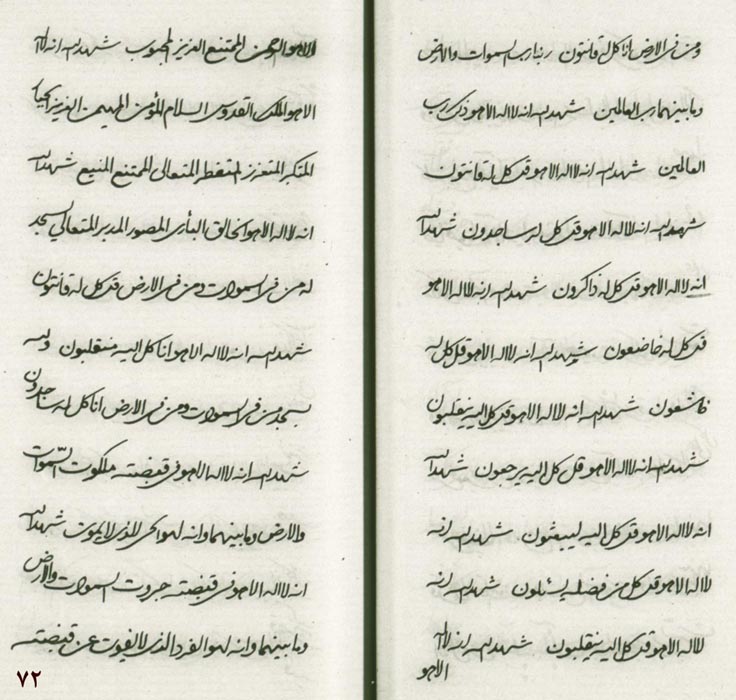 ومن فی الارض انا کل له قانتون ربنا رب السموات والارض
وما بینهما رب العالمین شهد الله انه لا اله الا هو ذلک رب
العالمین شهد الله انه لا اله الا هو قل کل له قانتون
شهد الله انه لا اله الا هو قل کل له ساجدون شهد الله
انه لا اله الا هو قل کل له ذاکرون شهد الله انه لا اله الا هو
قل کل له خاضعون شهد الله انه لا اله الا هو قل کل له
خاشعون شهد الله انه لا اله الا هو قل کل الیه ینقلبون
شهد الله انه لا اله الا هو قل کل الیه یرجعون شهد الله
انه لا اله الا هو قل کل الیه لیبعثون شهد الله انه
لا اله الا هو قل کل من فضله یسئلون شهد الله انه
لا اله الا هو قل کل الیه ینقلبون شهد الله انه لا اله
الا هو
الا هو الرحمن الممتنع العزیز المحبوب شهد الله انه لا اله
الا هو الملک القدوس السلام المؤمن المهیمن العزیز الجبار
المتکبر المتعزز المتعالی الممتنع المنیع شهد الله
انه لا اله الا هو الخالق البارئ المصور المدبر المتعالی یسجد
له من فی السموات ومن فی الارض قل کل له قانتون
شهد الله انه لا اله الا هو انا کل الیه منقلبون ولله
یسجد من فی السموات ومن فی الارض انا کل له ساجدون
شهد الله انه لا اله الا هو فی قبضته ملکوت السموات
والارض وما بینهما وانه لهو الحی الذی لا یموت شهد الله
انه لا اله الا هو فی قبضته جبروت السموات والارض
وما بینهما وانه لهو الفرد الذی لا یفوت عن قبضته
۷۲